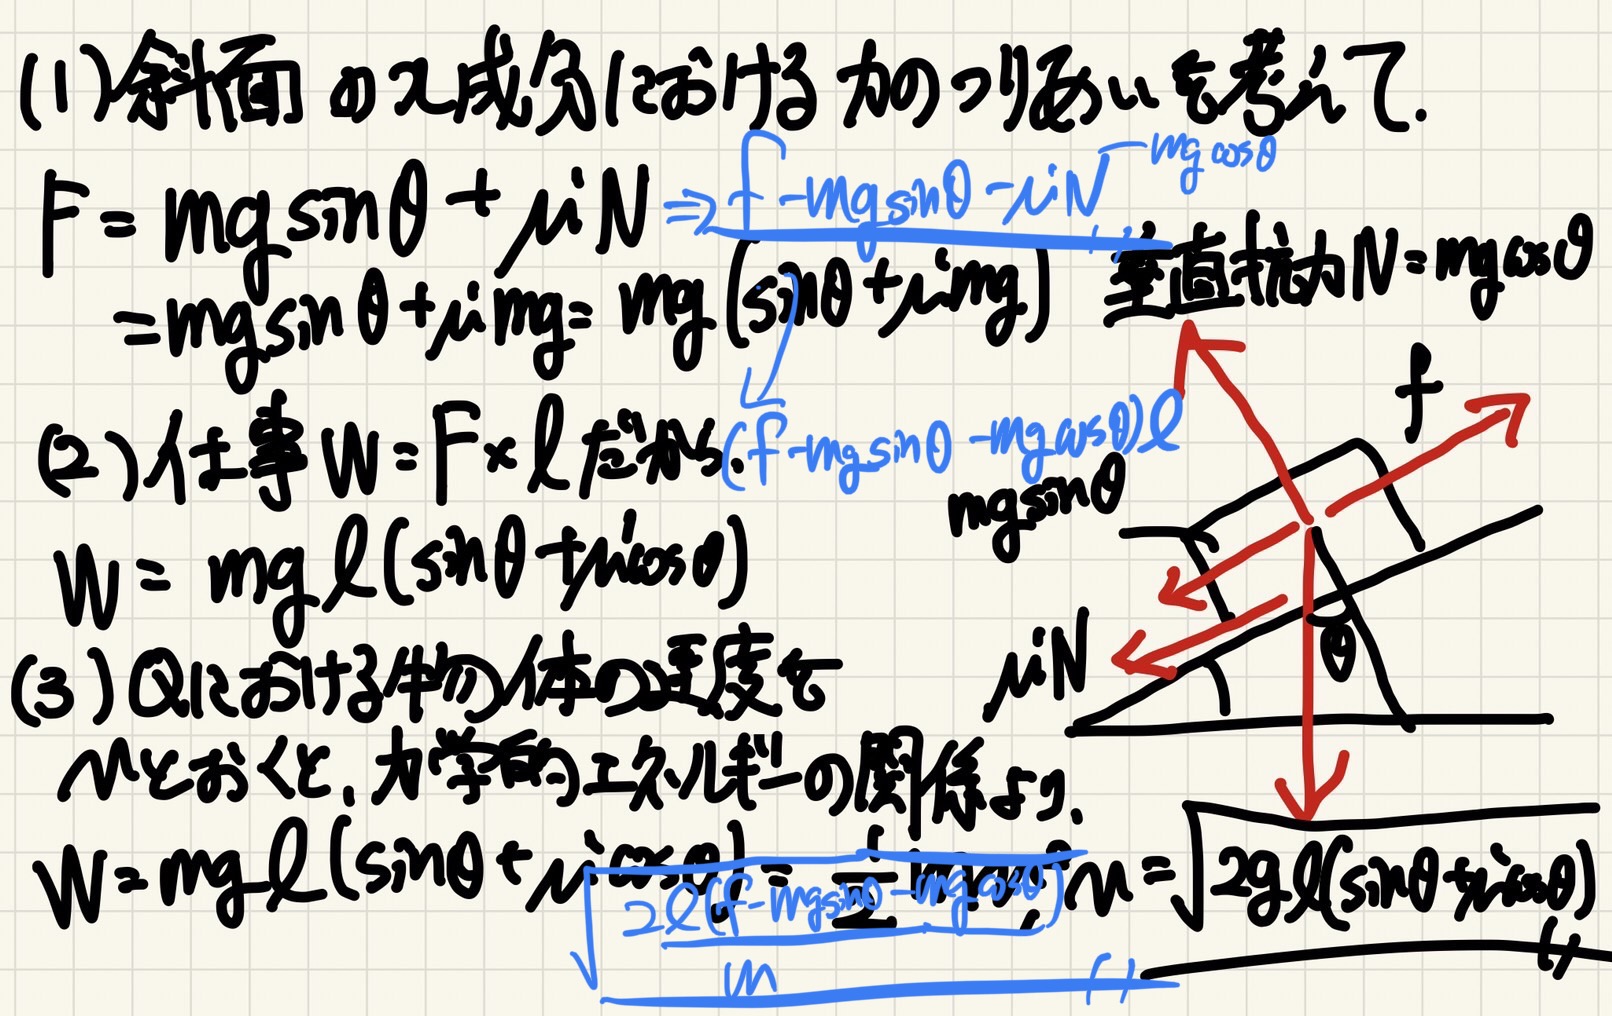 (1)斜面のx成分における力のつりあいを考えて.
F = mg sinθ + μ'N ⇒ f - mg sinθ - μ'N mg cosθ
= mg sinθ + μ'mg = mg (sinθ + μ'mg) 垂直抗力N = mg cosθ
f
(2)仕事 W = F × l だから. (f - mg sinθ - mg cosθ) l
mg sinθ
W = mg l (sinθ + μ'cosθ)
θ
μ'N
(3)Qにおける物体の速度を
vとおくと、力学的エネルギーの関係より、
W = mg l (sinθ + μ'cosθ) = v = √2gl(sinθ + μ'cosθ)
2l(f - mg sinθ - mg cosθ)
m